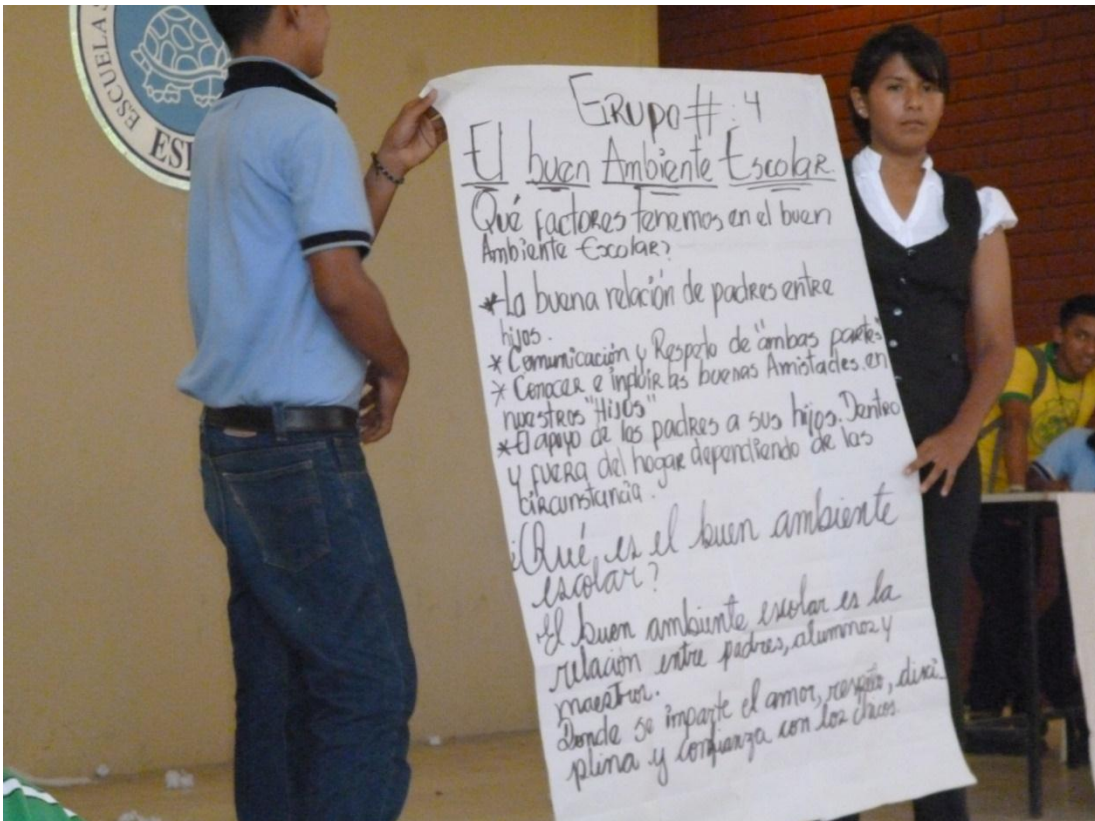 ESCUELA
ESP
GRUPO #: 4
El buen Ambiente Escolar.
Qué factores tenemos en el buen
Ambiente Escolar?
*La buena relación de padres entre
hijos.
* Comunicación y Respeto de "ambas partes"
* Conocer e incluir las buenas Amistades. en
nuestros "Hijos"
*El apoyo de los padres a sus hijos. Dentro
y fuera del hogar dependiendo de las
circunstancia.
¿Qué es el buen ambiente
escolar?
El buen ambiente escolar es la
relación entre padres, alumnos y
maestros.
Donde se imparte el amor, respeto, disci-
plina y confianza con los chicos